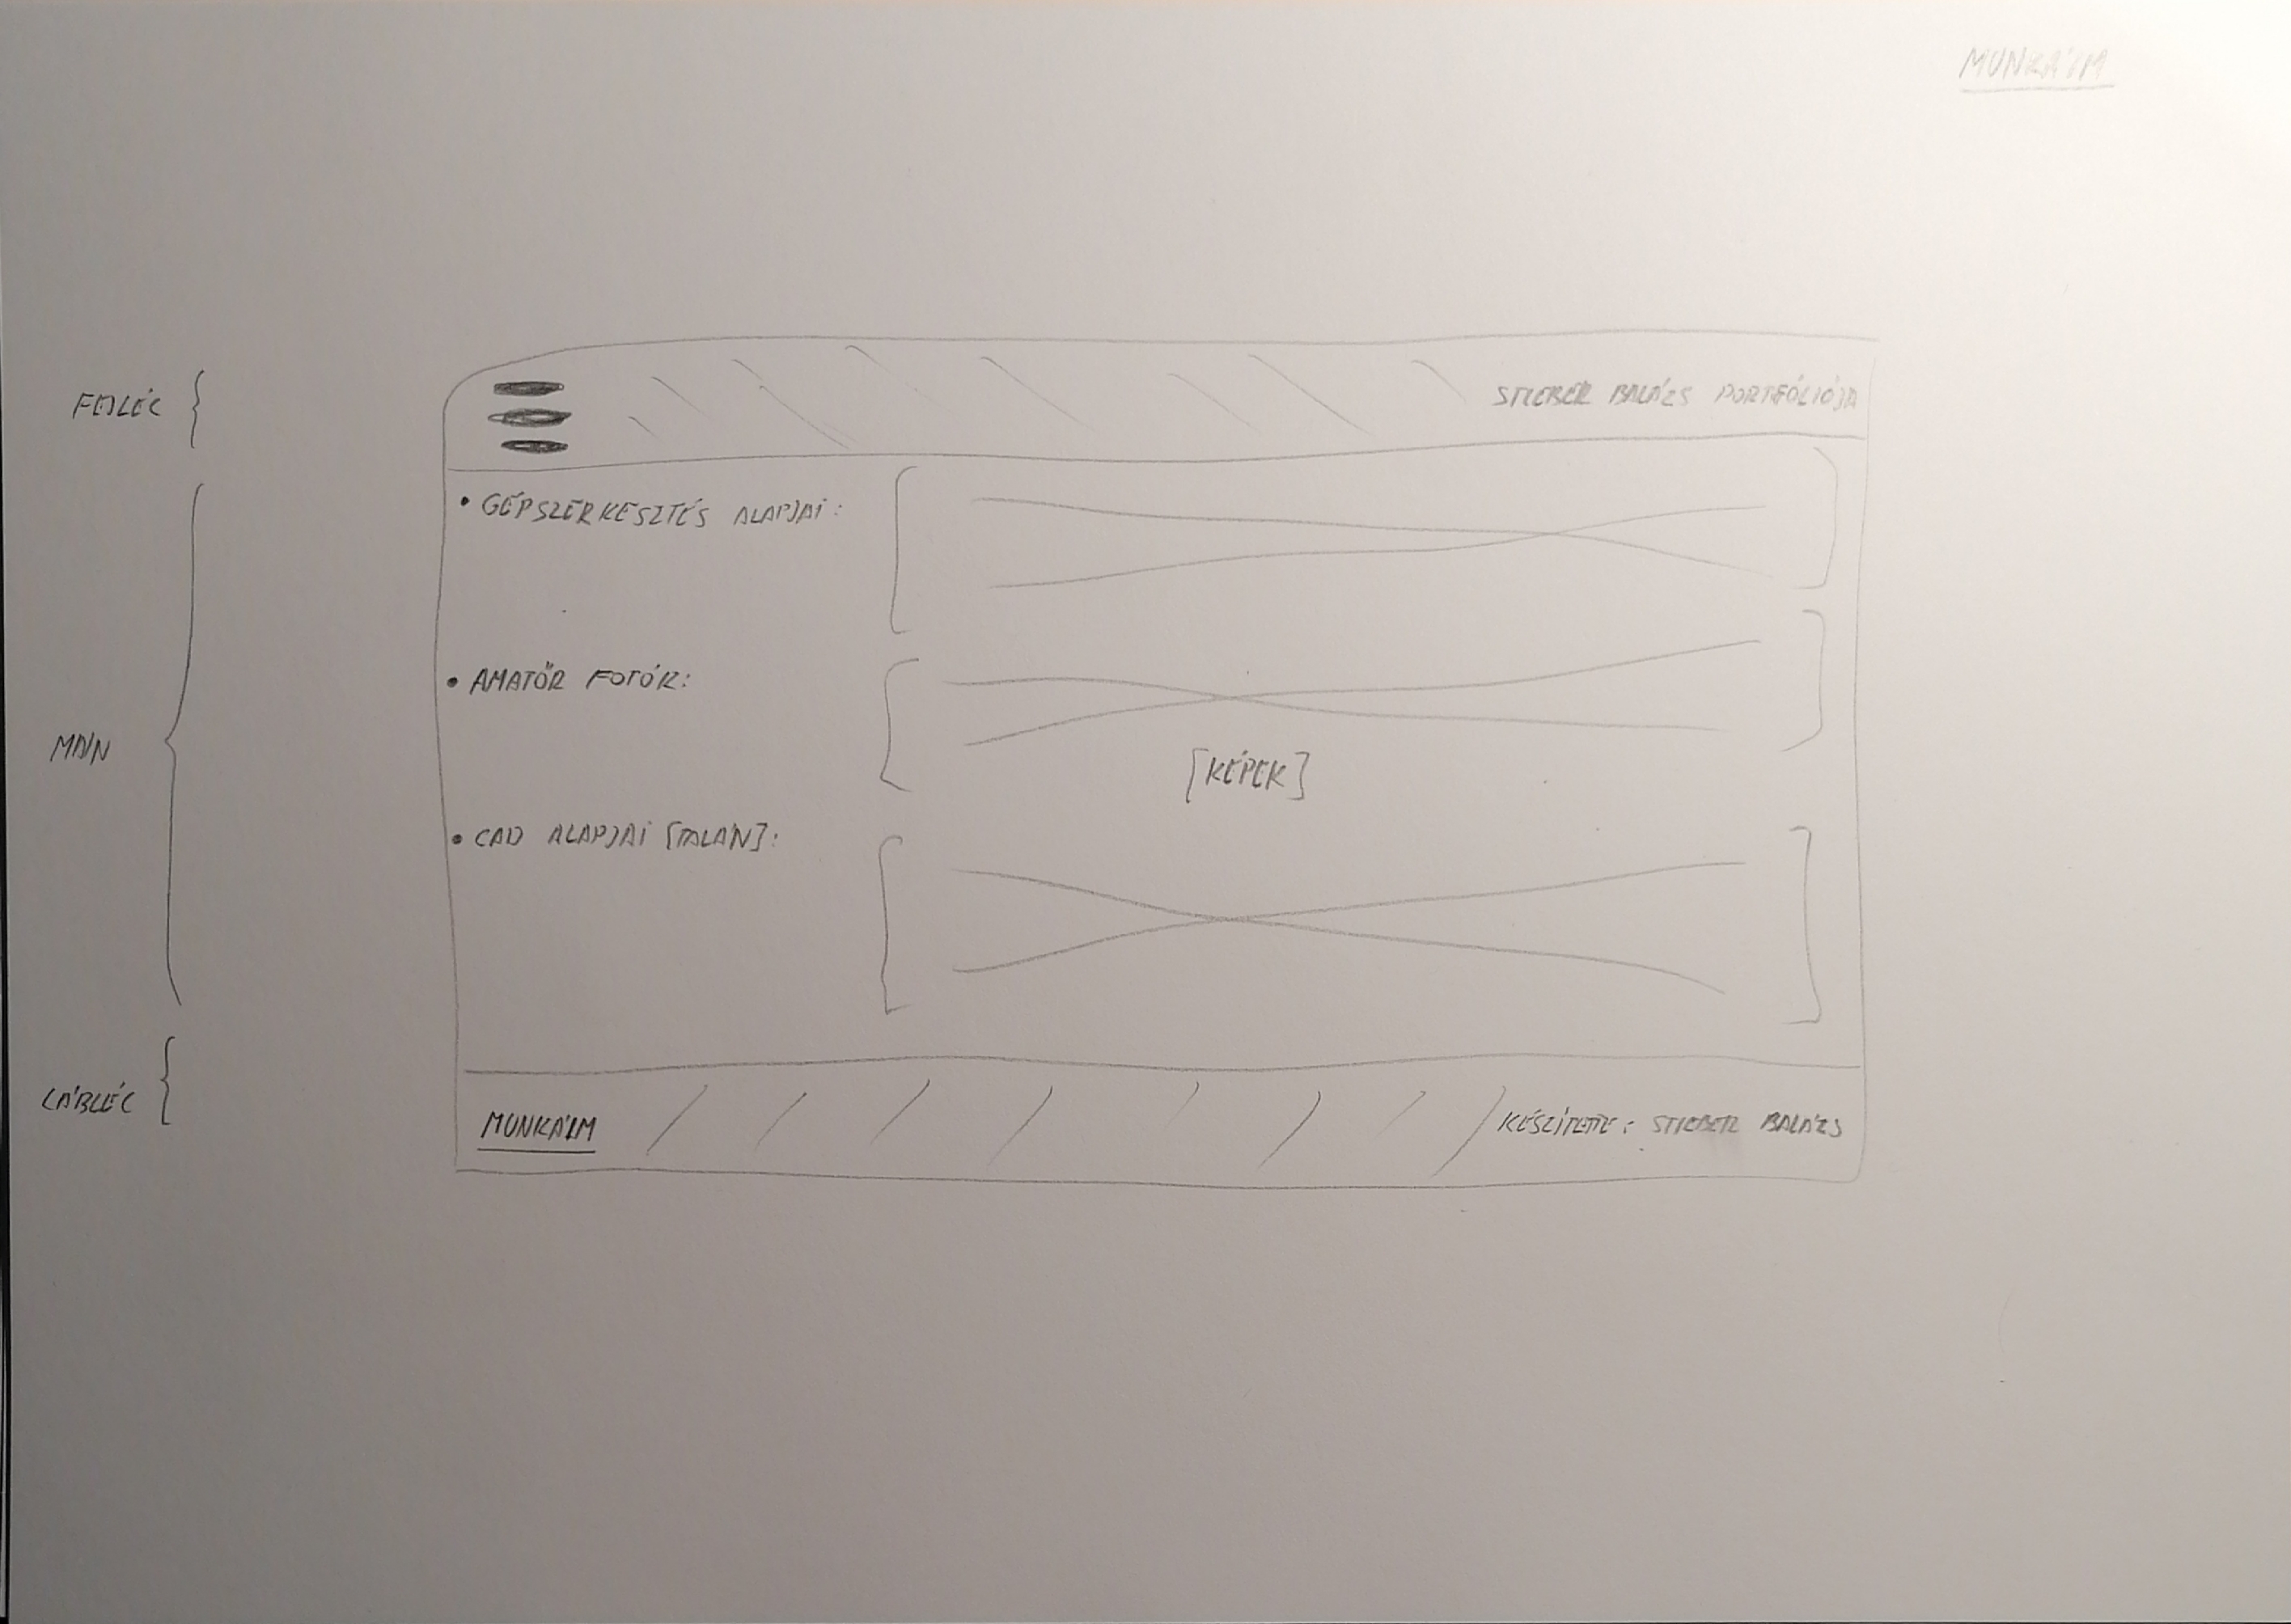 MUNKÁIM
FEJLÉC
STIEBER BALÁZS PORTFÓLIÓJA
• GÉPSZERKESZTÉS ALAPJAI:
• AMATŐR FOTÓK:
MAIN
[KÉPEK]
• CAD ALAPJAI [TALÁN]:
LÁBLÉC
MUNKÁIM
KÉSZÍTETTE: STIEBER BALÁZS